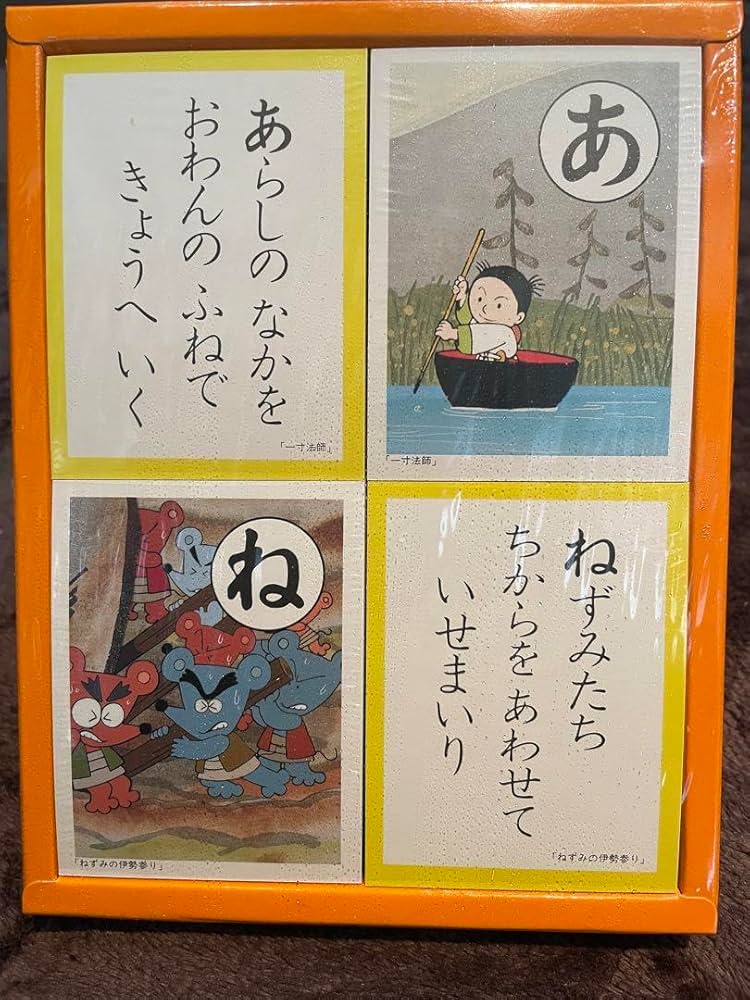 あらしの なかを
おわんの ふねで
きょうへ いく
「一寸法師」
あ
「一寸法師」
ね
「ねずみの伊勢参り」
ねずみたち
ちからを あわせて
いせまいり
「ねずみの伊勢参り」